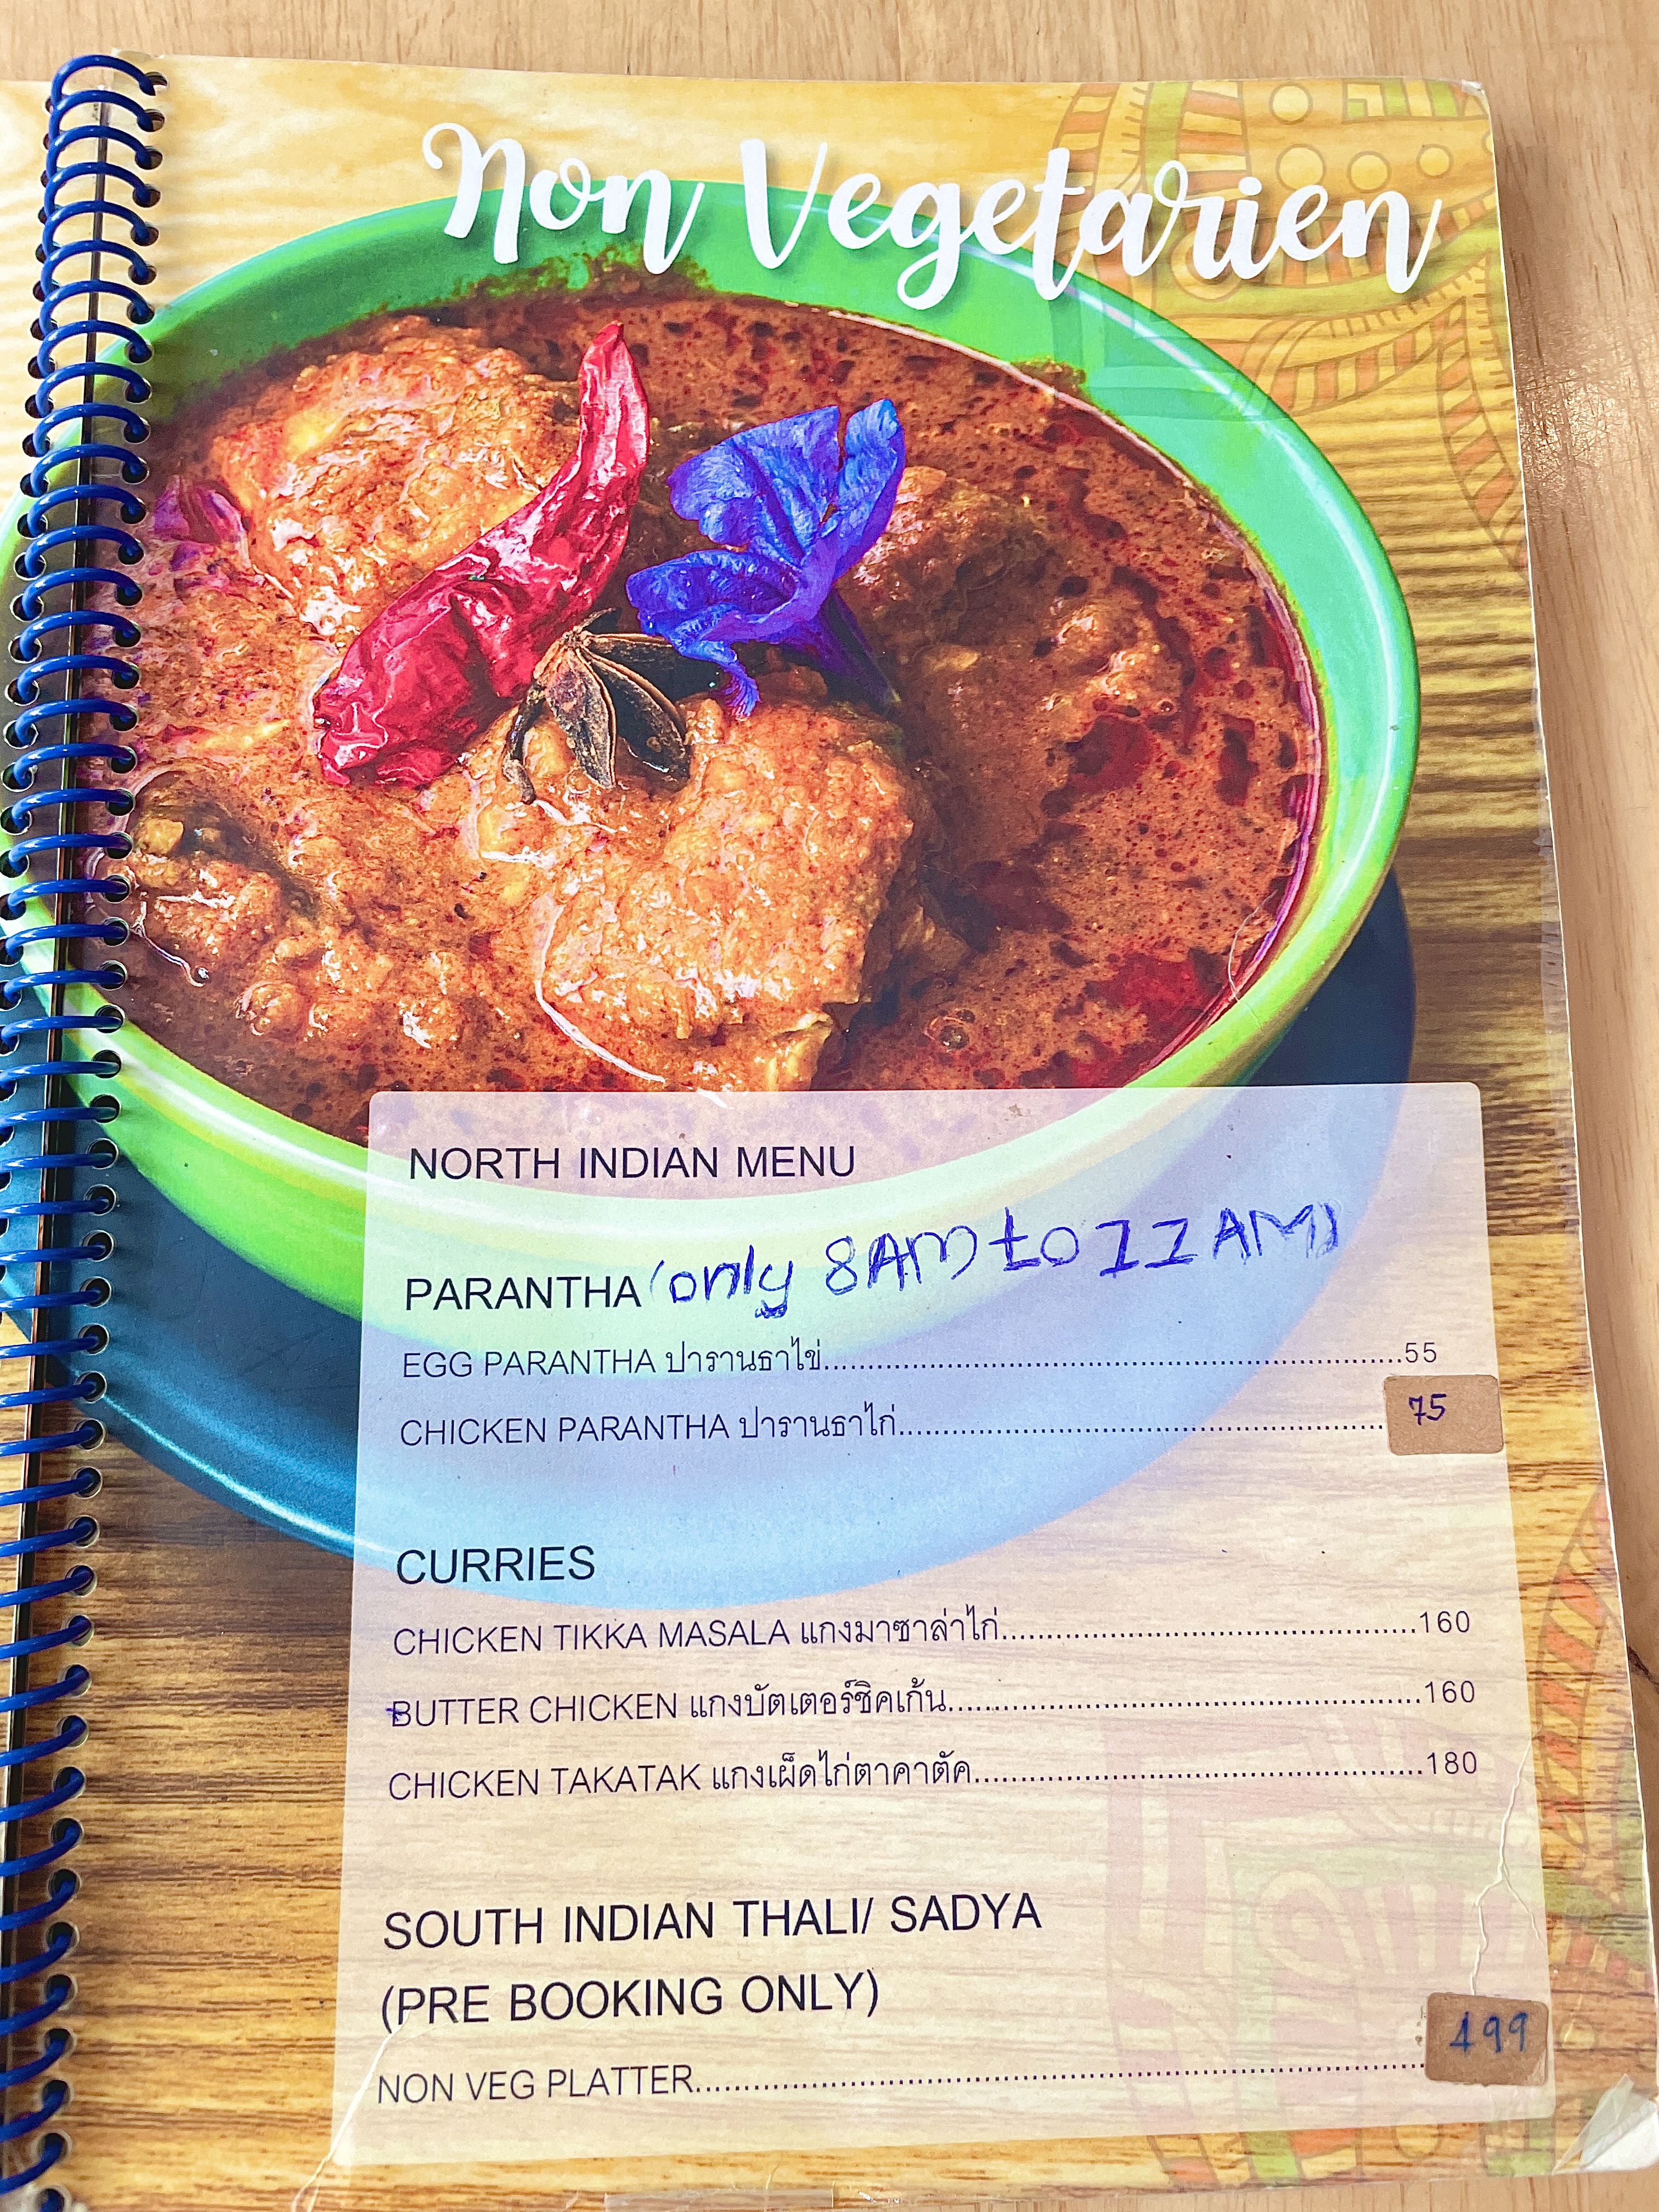 Non Vegetarien
NORTH INDIAN MENU
PARANTHA (only 8AM to 11AM)
EGG PARANTHA ปารานธาไข่................................................................55
CHICKEN PARANTHA ปารานธาไก่......................................................75
CURRIES
CHICKEN TIKKA MASALA แกงมาซาล่าไก่..............................................160
BUTTER CHICKEN แกงบัตเตอร์ชิคเก้น....................................................160
CHICKEN TAKATAK แกงเผ็ดไก่ตาคาตัค.................................................180
SOUTH INDIAN THALI/ SADYA
(PRE BOOKING ONLY)
NON VEG PLATTER...........................................................................499